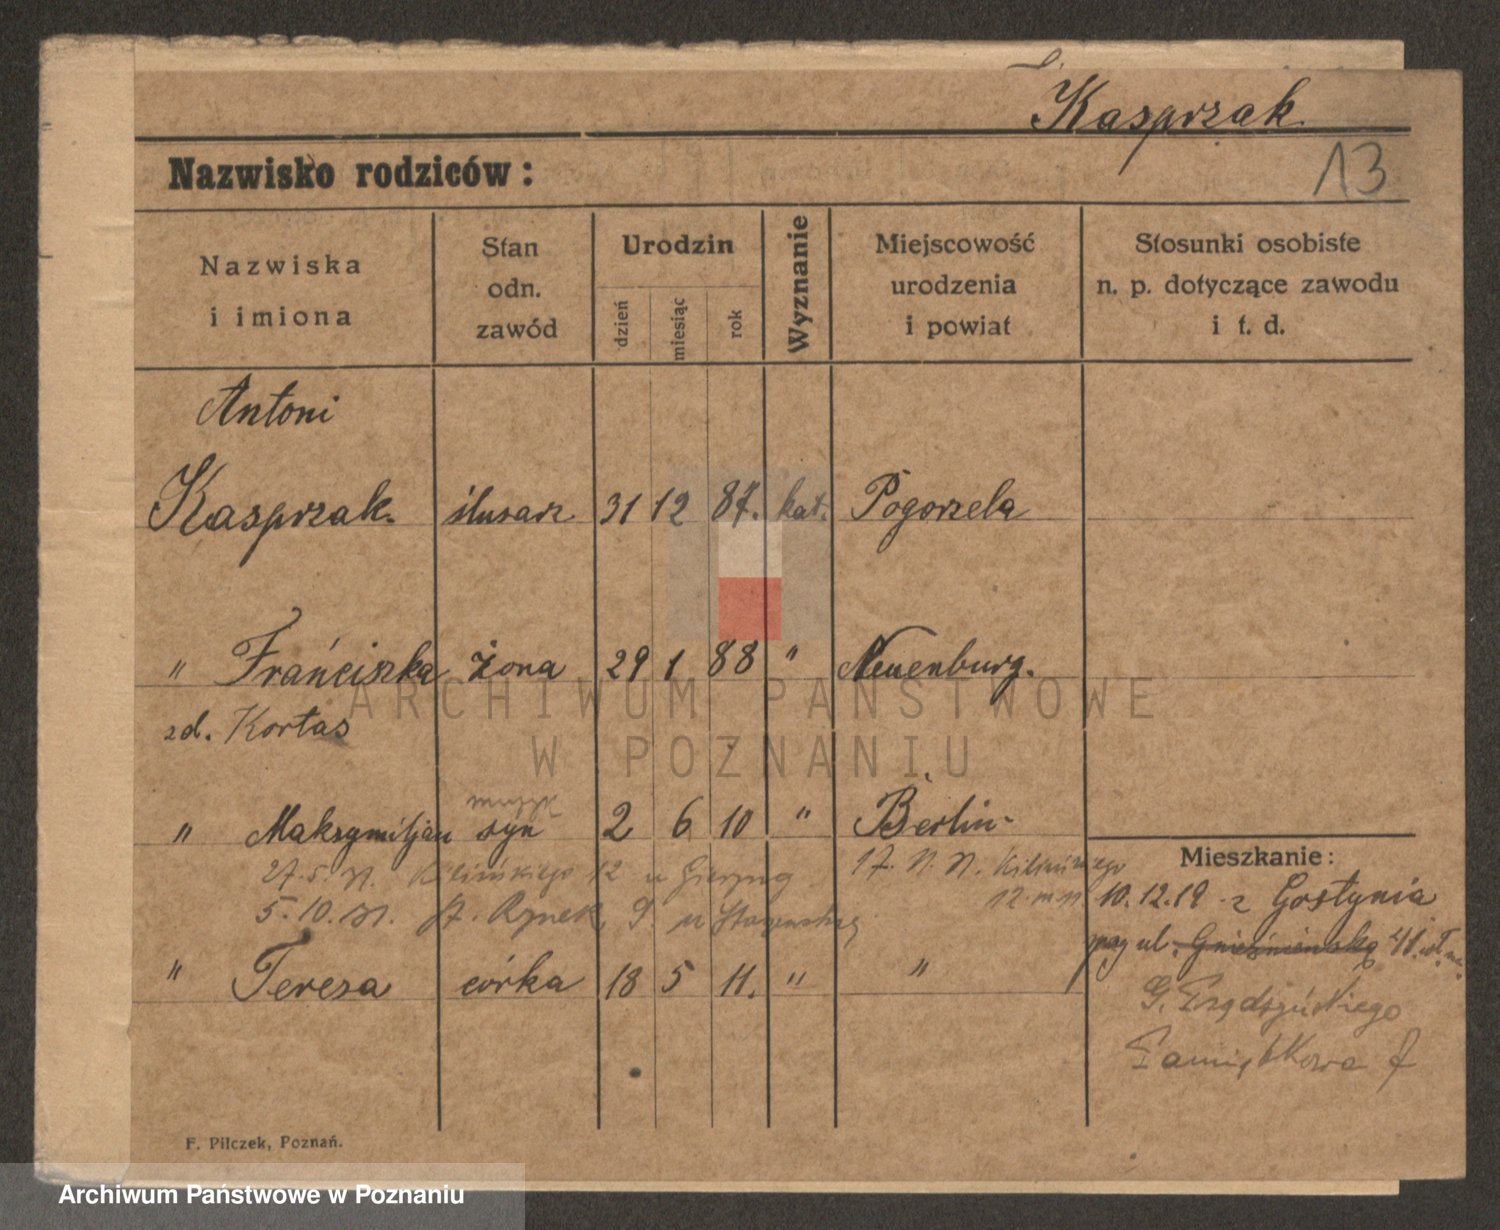 Kasprzak
13
Nazwisko rodziców:
Nazwiska i imiona
Stan odn. zawód
Urodzin
dzień
miesiąc
rok
Wyznanie
Miejscowość urodzenia i powiat
Stosunki osobiste n. p. dotyczące zawodu i t. d.
Antoni
Kasprzak. ślusarz 31 12 87. kat. Pogorzela
" Franciszka żona 29 1 88 " Neuenburg.
zd. Kortas
" Maksymiljan syn 2 6 10 " Berlin
27.5. Kilińskiego 12 u
17. Kilińskiego 12
5.10. St. Rynek 9. u
Mieszkanie:
10.12.19 z Gostynia
ul. Gnieźnieńska 41
" Teresa córka 18 5 11. " "
G.
Pamiątkowa 7
F. Pilczek, Poznań.
ARCHIWUM PAŃSTWOWE
W POZNANIU
Archiwum Państwowe w Poznaniu